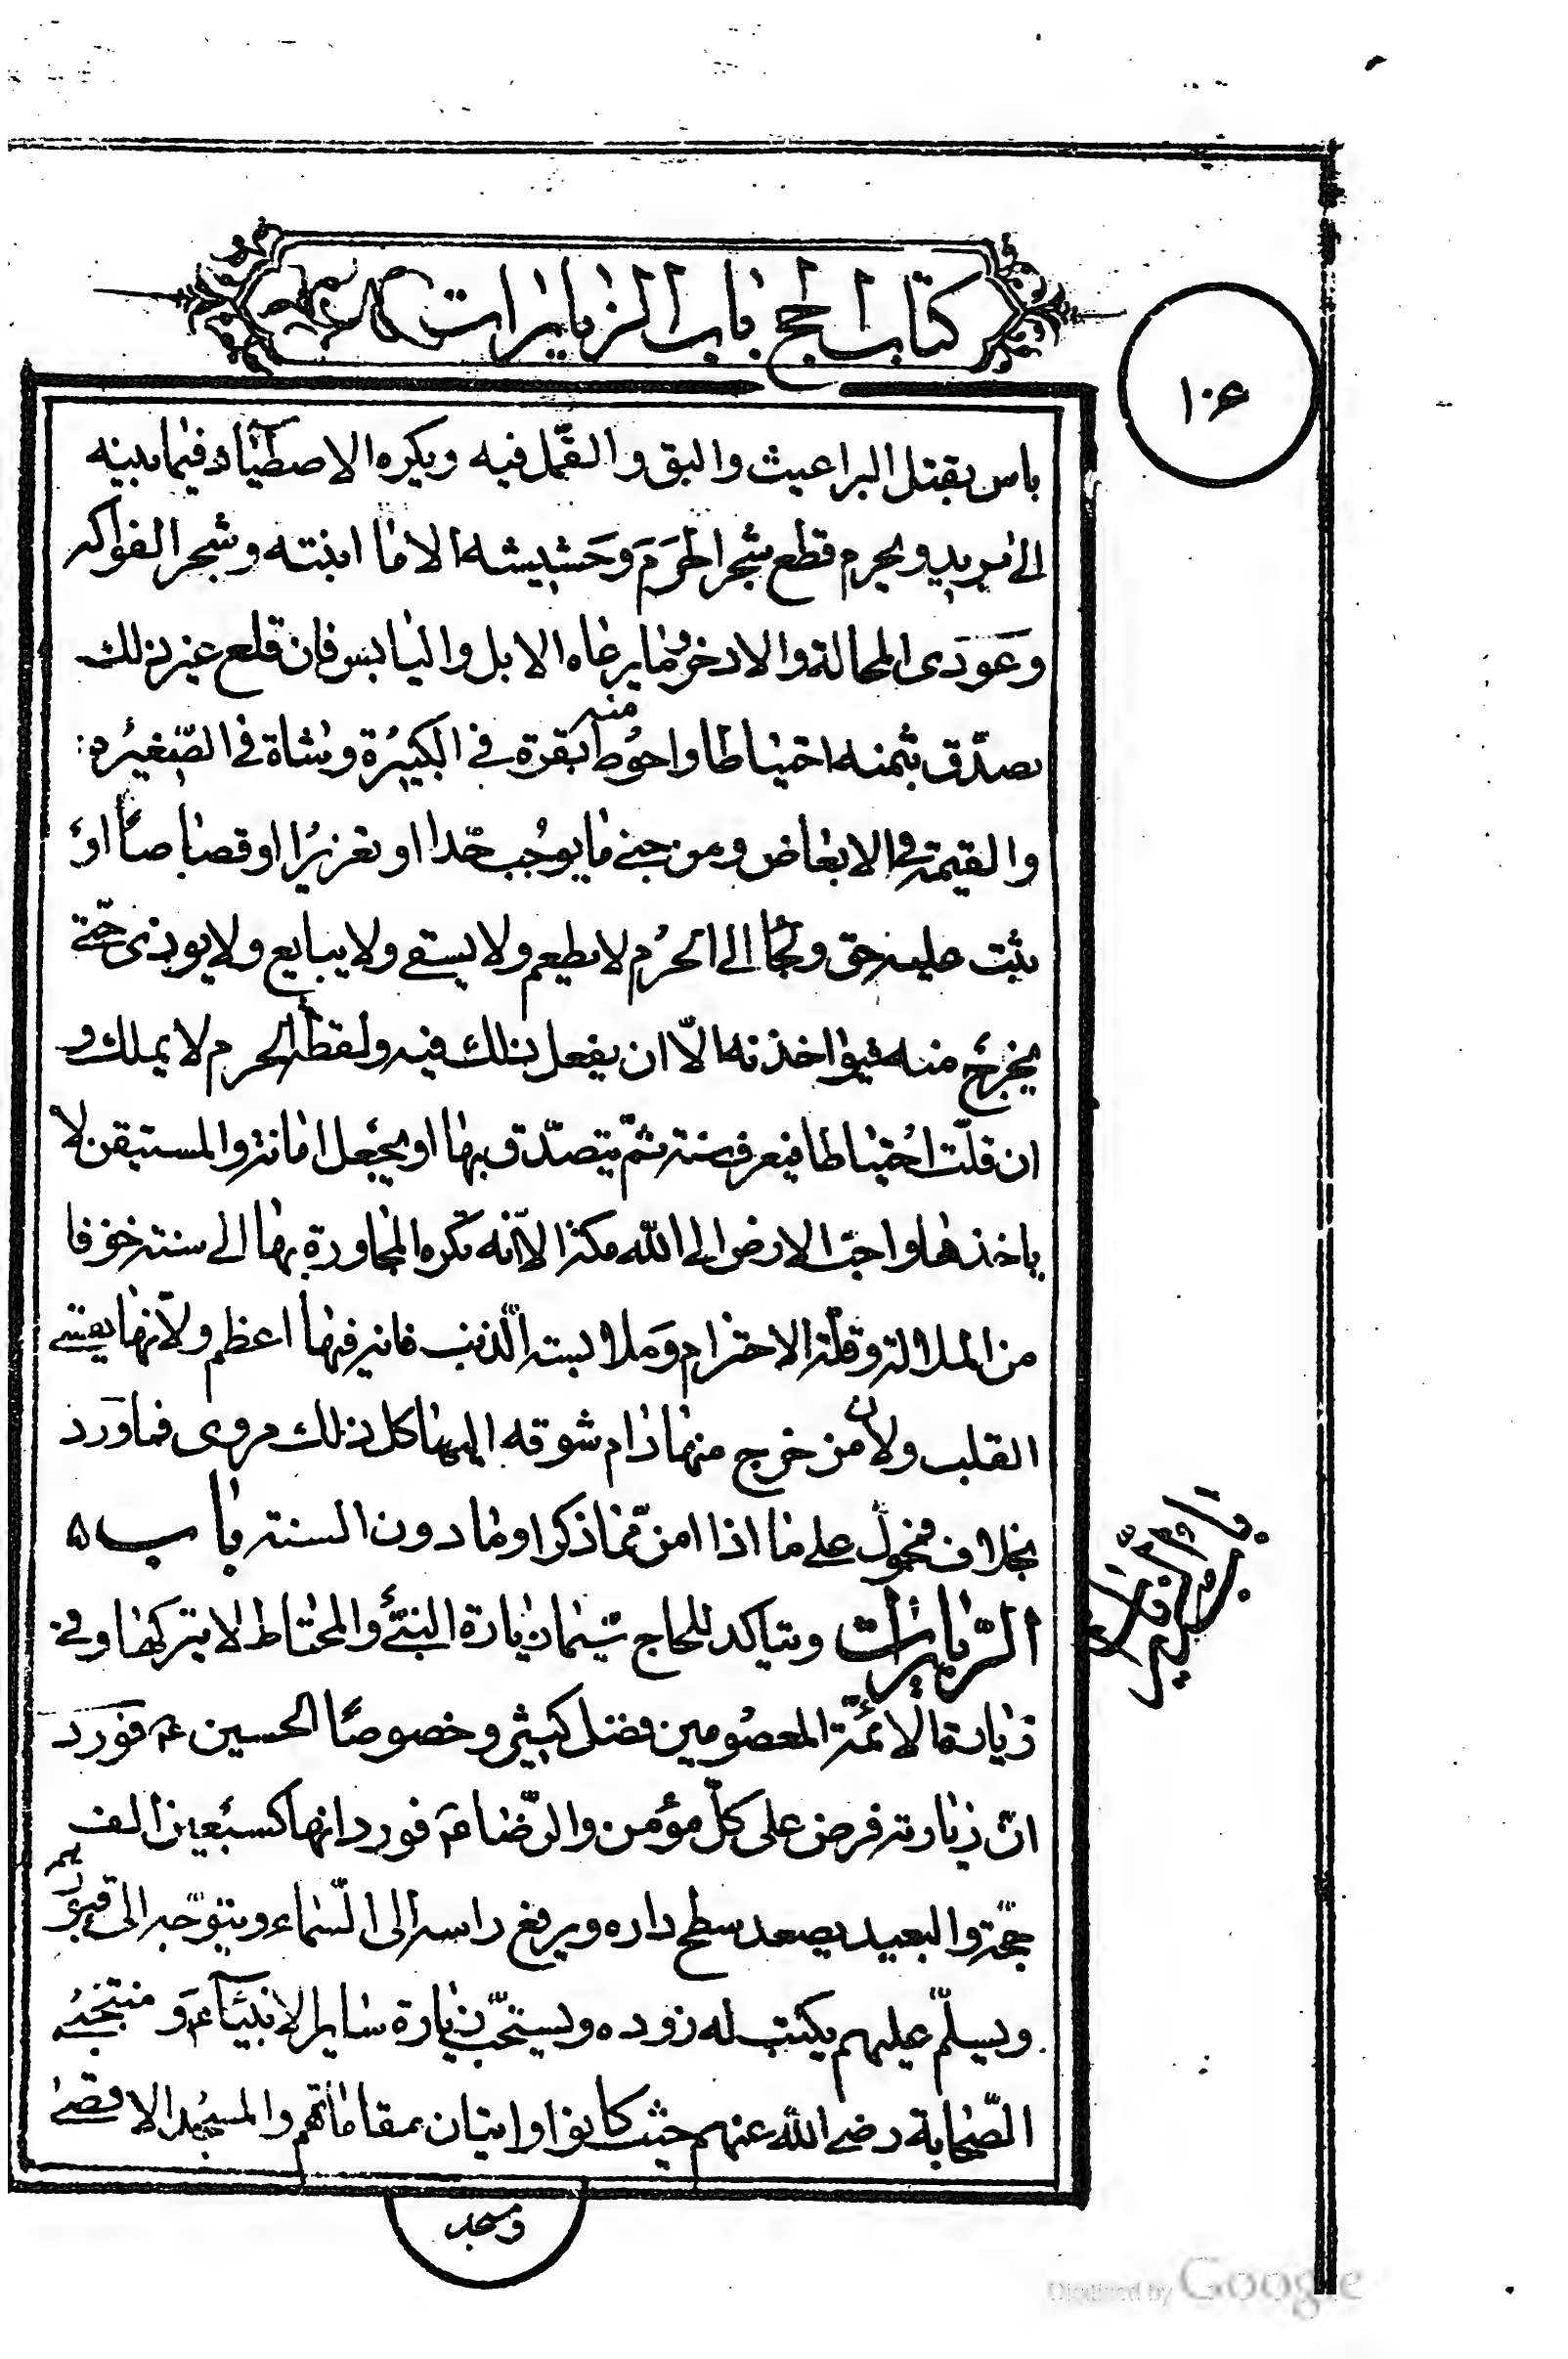 كتاب الحج باب الزيارات
١٠۶
باس بقتل البراغيث والبق والقمّل فيه ويكره الاصطياد فيما بينه
الى بريد ويحرم قطع شجر الحَرَمَ وحَشيشه الا ما انبته وشجر الفواكه
وعَودَى المحالة والاذخر وما يرعاه الابل واليابس فان قلع غير ذلك
تصدّق بثمنه احتياطا واحوُط منه بقرة في الكبيرُة وشاة في الصّغيرُة
والقيمة في الابعاض ومن جنى ما يوجُب حّدا او تعزيرًا او قصاصًا اوْ
ثبت عليه حق ولجُا الى الحرُم لا يطعم ولا يسقى ولا يبايع ولا يوذى حّتى
يخرجُ منه فيؤاخذ به الّا ان يفعل ذلك فيه ولقطة الحرم لا يملك و
ان قلّت احُتياطا فيعرف سنة ثمّ يتصدّق بها او يجُعل امانة والمستيقن لا
ياخذها واحبّ الارض الى الله مكة الا انّه تكره المجاورة بها الى سنة خوفا
من الملالة وقلّة الاحترام وَملابسة الّذنب فانه فيها اعظم ولانّها يقسى
القلب ولان من خرج منها دام شوقه اليها كل ذلك مروى فما وَرد
بخلاف فمحمول على ما اذا امن ممّا ذكر او ما دون السنة باب ۵
الزّيارات ويتاكد للحاج سّيما زيارة النبىّ والمحتاط لا يتركها وفى
زيارة الائمّة المعصُومين فضل كبيُر وخصوصًا الحسين عؔ فوَرد
انّ زيارته فرض على كلّ مؤمن والرّضاء عؔ فورد انها كسبُعين الف
حجّة والبعيد يصعد سطح داره ويرفع راسه الى السّماء ويتوّجه الى قبورهم
ويسلّم عليهم يكتب له زوره ويستحّب زيارة ساير الانبيُاء عؔ و منتجبى
الصّحابة رضى الله عنهم حيث كانوا واتيان مقاماتهم والمسجُد الاقصى
ومسجد
Digitized by Google